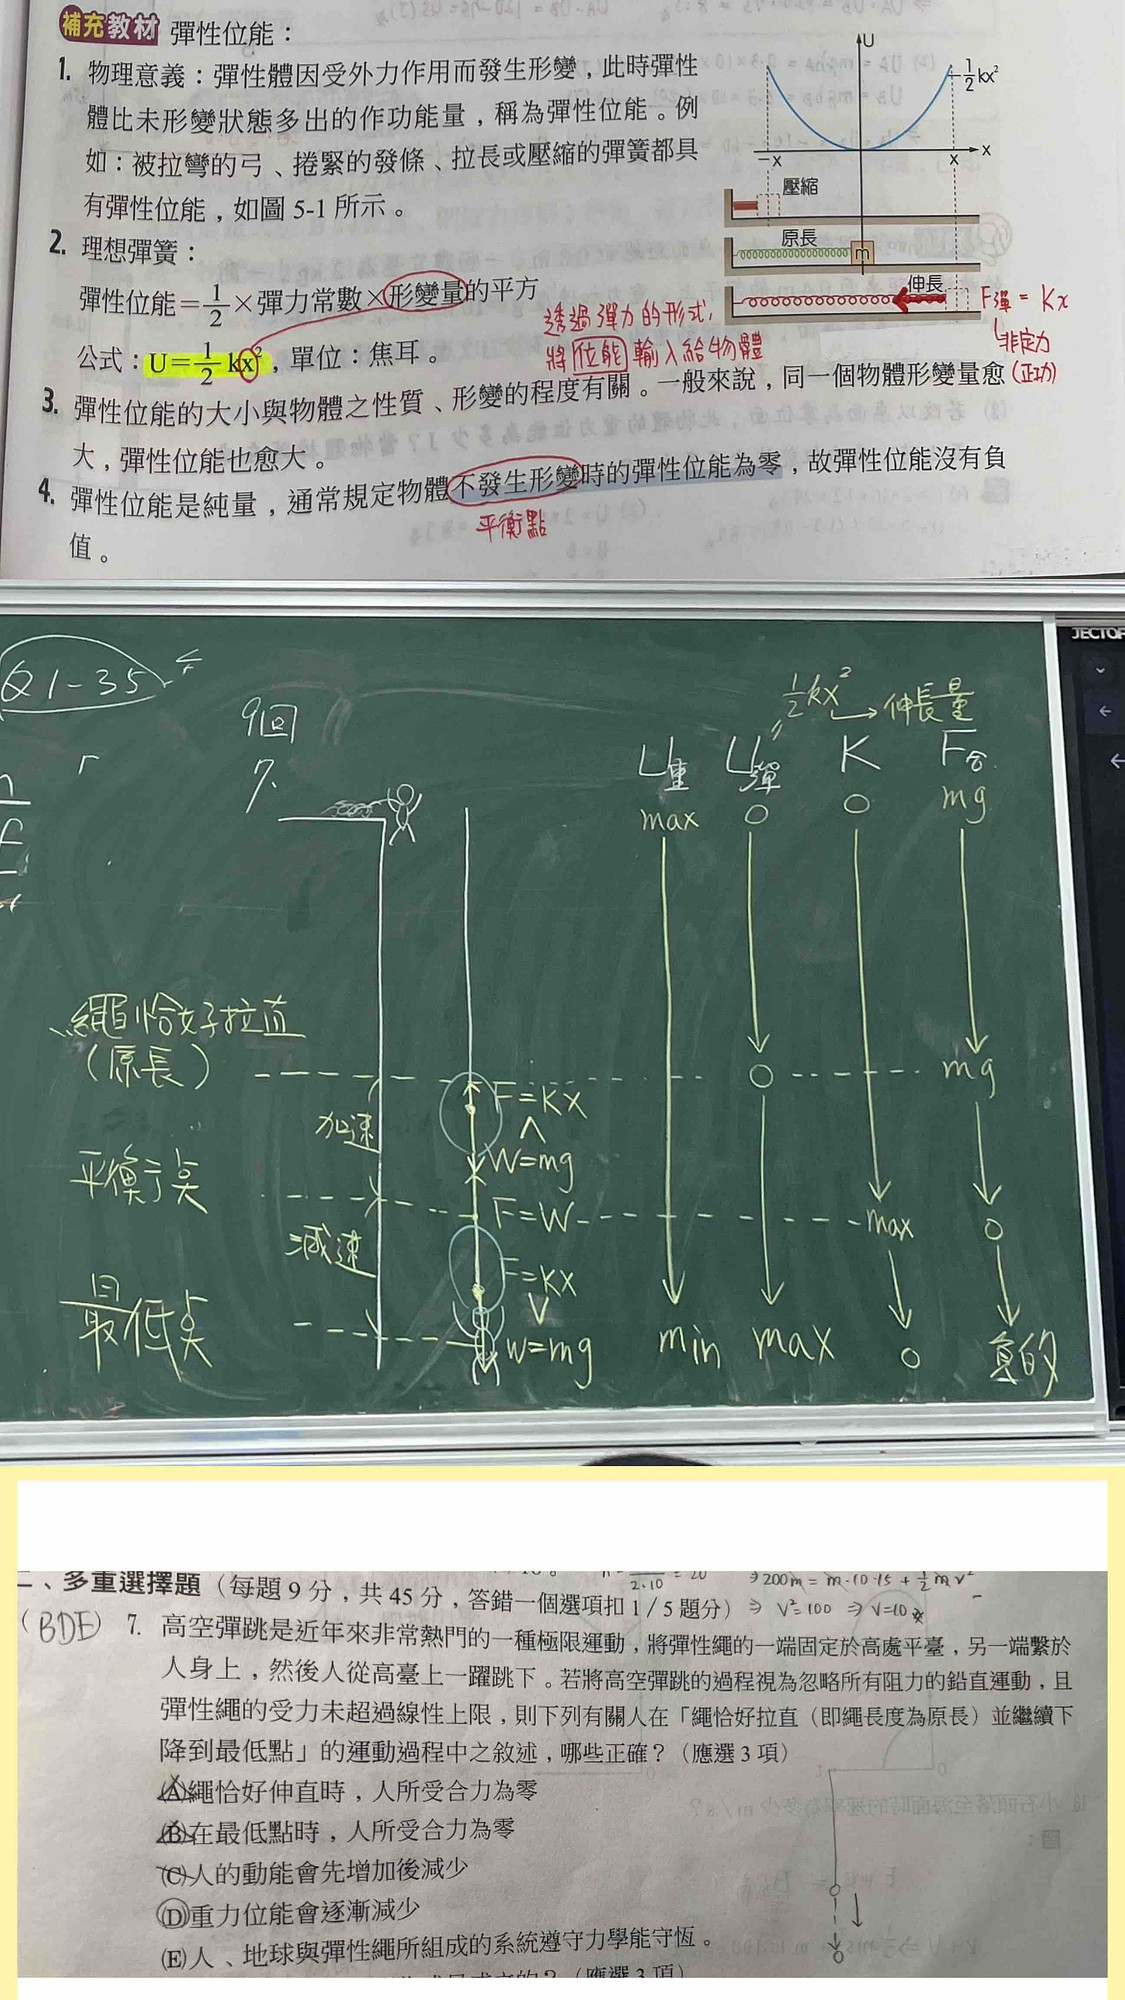 補充教材 彈性位能：
1. 物理意義：彈性體因受外力作用而發生形變，此時彈性
體比未形變狀態多出的作功能量，稱為彈性位能。例
如：被拉彎的弓、捲緊的發條、拉長或壓縮的彈簧都具
有彈性位能，如圖 5-1 所示。
U
½kx²
-x
x
x
壓縮
原長
m
伸長
2. 理想彈簧：
彈性位能＝½×彈力常數×形變量的平方
公式：U＝½kx²，單位：焦耳。
透過彈力的形式，
將位能輸入給物體
F彈 = Kx
非定力
(正功)
3. 彈性位能的大小與物體之性質、形變的程度有關。一般來說，同一個物體形變量愈
大，彈性位能也愈大。
4. 彈性位能是純量，通常規定物體不發生形變時的彈性位能為零，故彈性位能沒有負
平衡點
值。
JECTOR
Q1-35
9回
7.
½kx² → 伸長量
U重 U彈 K F合
max 0 0 mg
繩恰好拉直
(原長)
0 mg
加速
F=KX
^
W=mg
平衡點
F=W
max 0
減速
F=KX
v
W=mg
最低點
min max 0 負的
二、多重選擇題（每題 9 分，共 45 分，答錯一個選項扣 1／5 題分）
2·10 = 20
⇒200m = m·10·15 + ½mv²
⇒ V²=100 ⇒ V=10
(BDE) 7. 高空彈跳是近年來非常熱門的一種極限運動，將彈性繩的一端固定於高處平臺，另一端繫於
人身上，然後人從高臺上一躍跳下。若將高空彈跳的過程視為忽略所有阻力的鉛直運動，且
彈性繩的受力未超過線性上限，則下列有關人在「繩恰好拉直（即繩長度為原長）並繼續下
降到最低點」的運動過程中之敘述，哪些正確？（應選 3 項）
(A)繩恰好伸直時，人所受合力為零
(B)在最低點時，人所受合力為零
(C)人的動能會先增加後減少
(D)重力位能會逐漸減少
(E)人、地球與彈性繩所組成的系統遵守力學能守恆。
（應選 3 項）